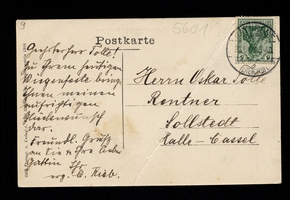 9
5601
Postkarte
Geehrter Herr Tolle!
Zu Ihrem heutigen
Wiegenfeste bringe
Ihnen meinen
aufrichtigen
Glückwunsch
dar.
Freundl. Grüße
an Sie & Ihre liebe
Gattin Ihr
erg. C. Rieb.
Herrn Oskar Tolle
Rentner
Sollstedt
Halle-Cassel